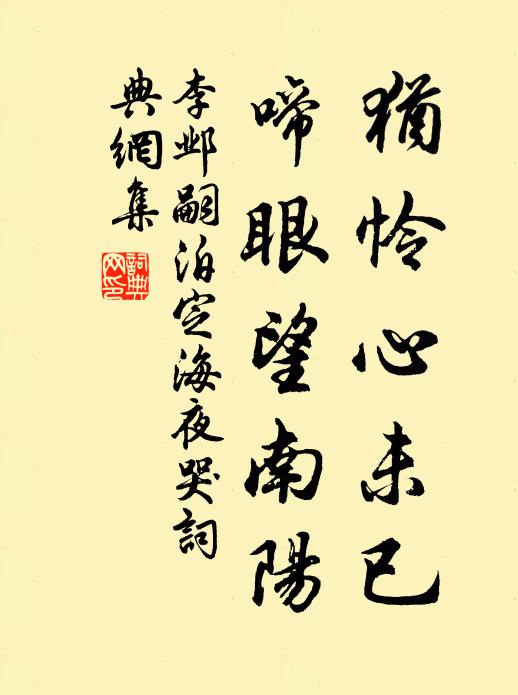 猶怜心未已
啼眼望南陽
李邺嗣泊定海夜哭詞
典網集
詞典网印